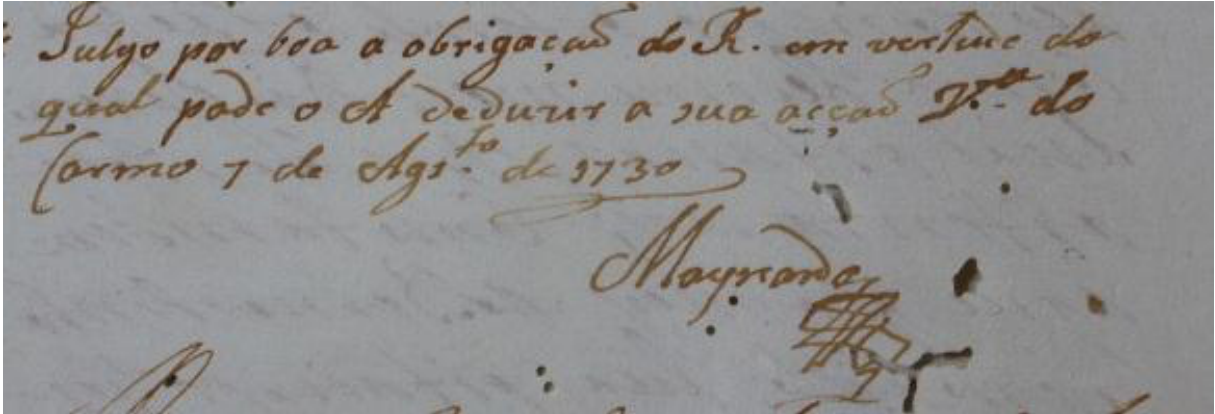 Julgo por boa a obrigação do R. em vertude do
qual pode o A deduzir a sua acção V.ª do
Carmo 7 de Ags.to de 1730
Maynarde